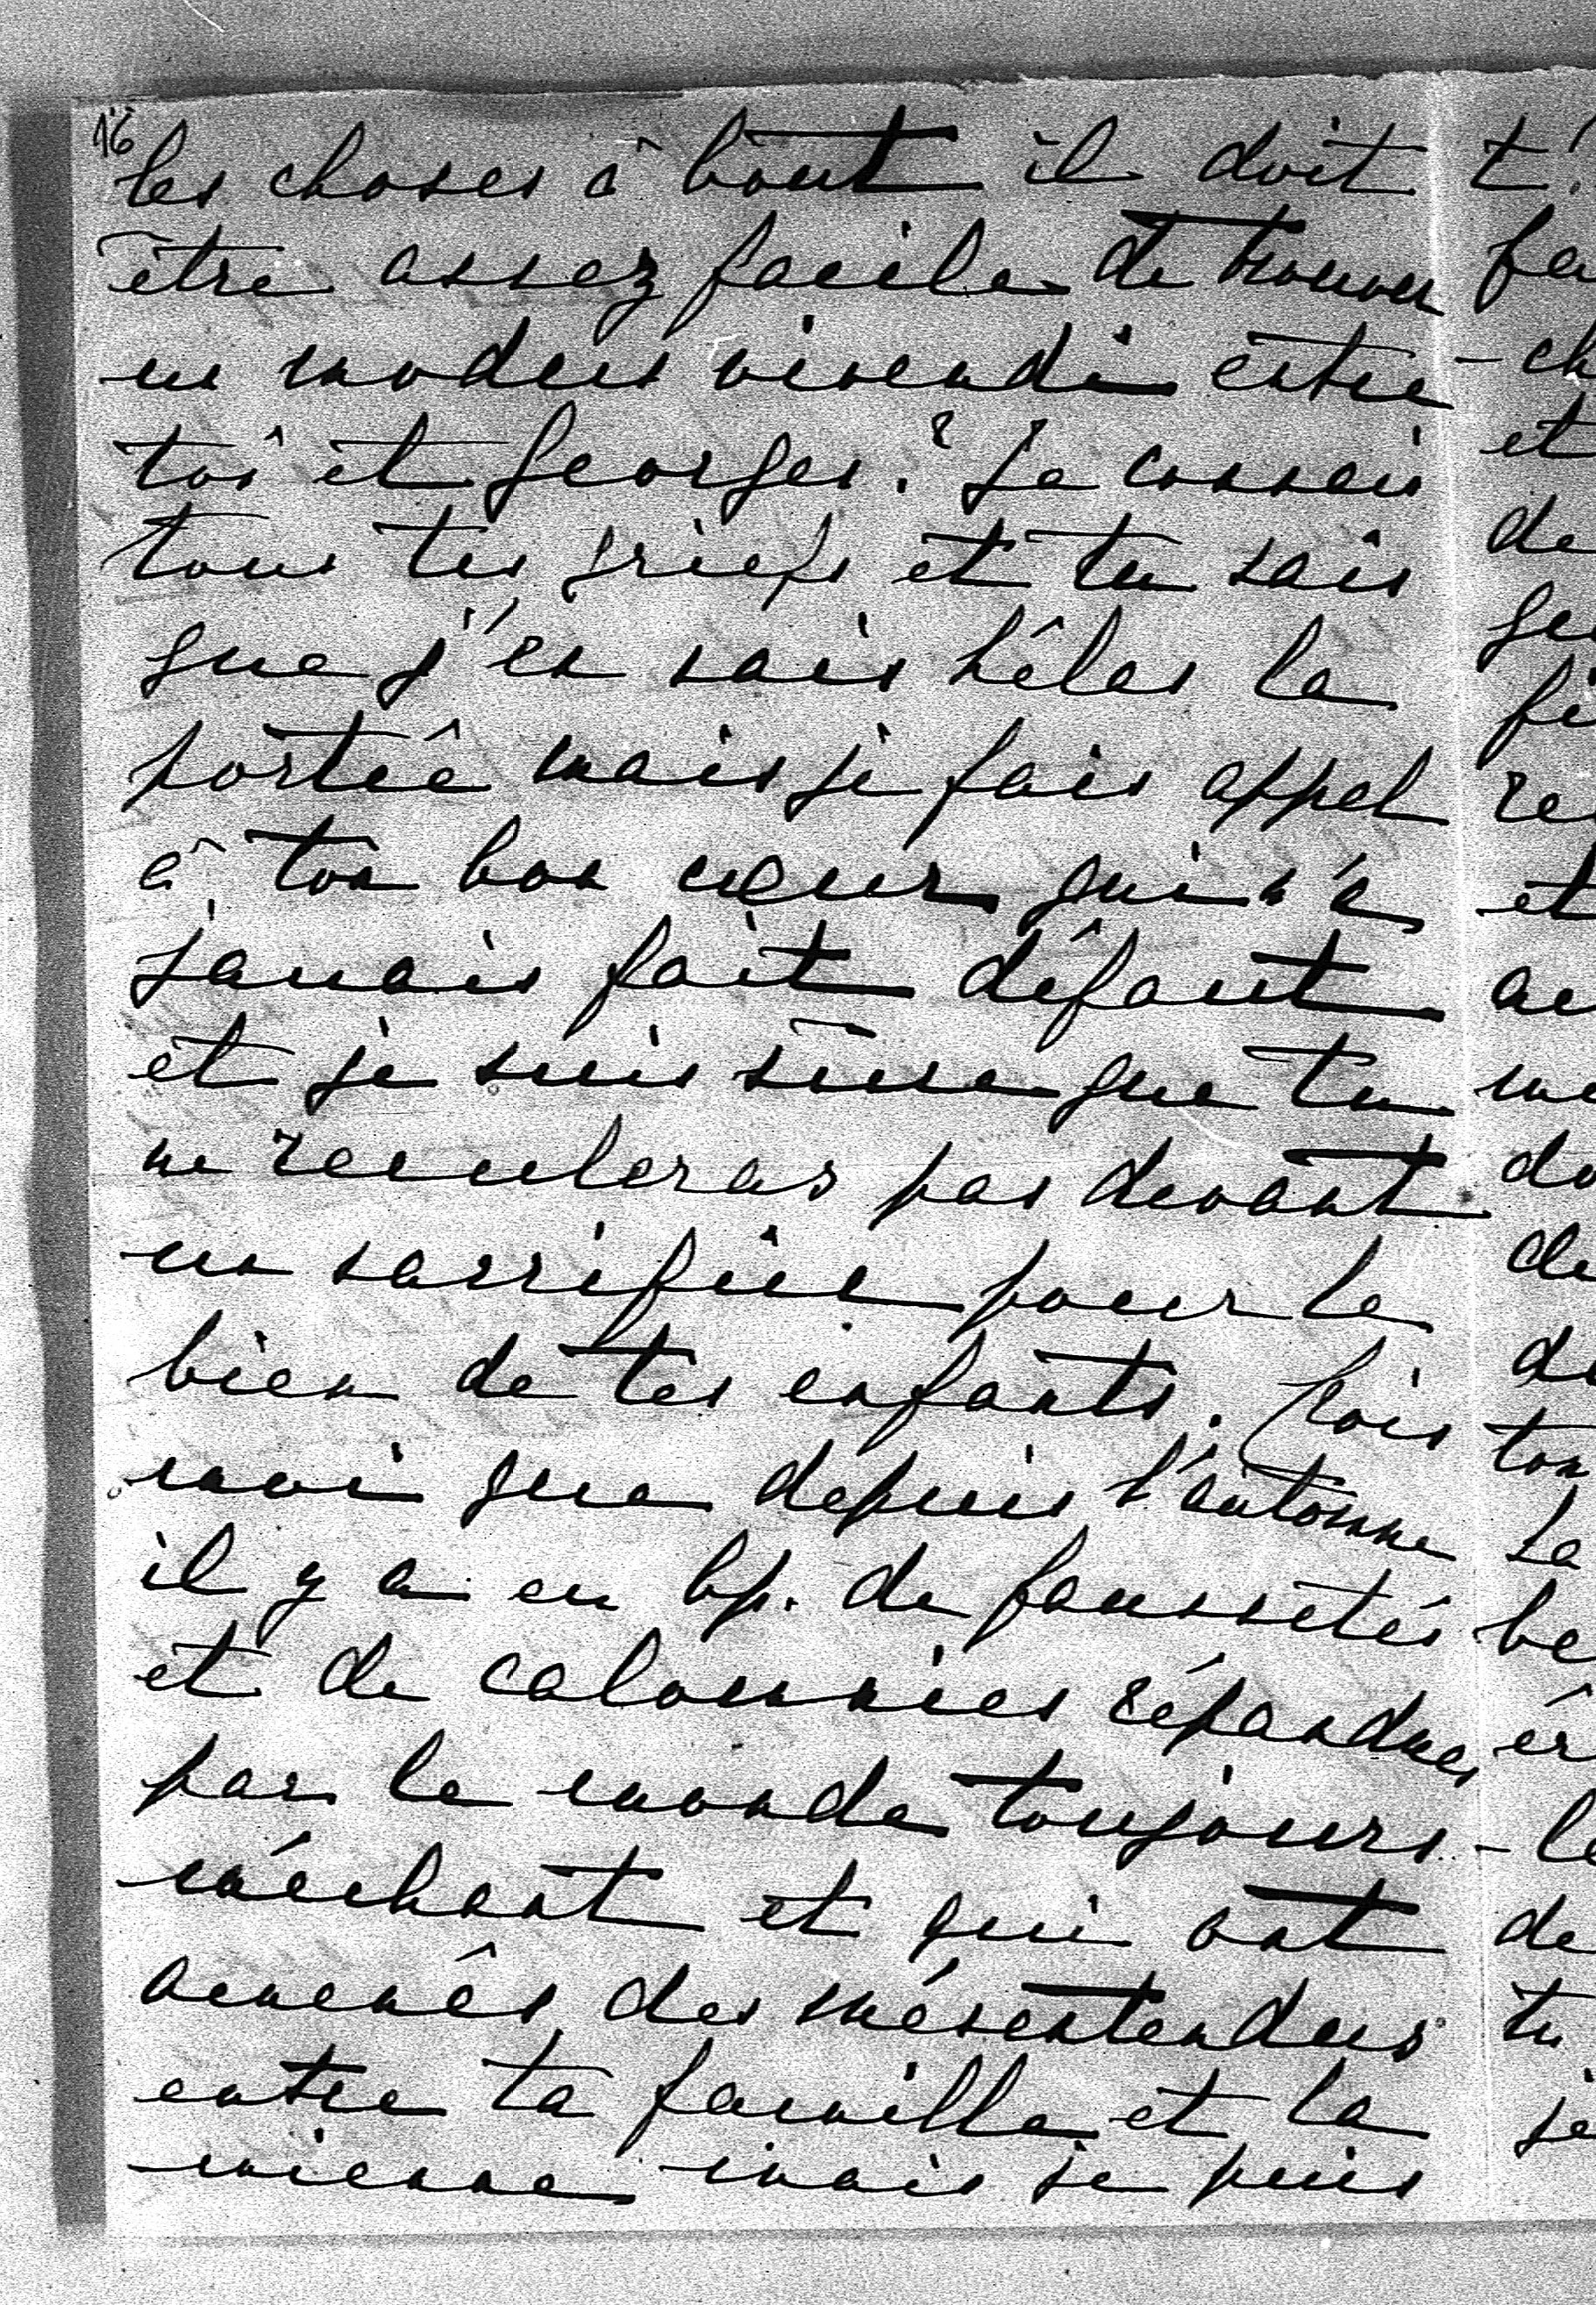 16
les choses à bout il doit
être assez facile de trouver
un modus vivendi entre
toi et Georges. Je connais
tous tes griefs et tu sais
que j'en sais hélas la
portée mais je fais appel
à ton bon cœur qui n'a
jamais fait défaut
et je suis sûre que tu
ne reculeras pas devant
un sacrifice pour le
bien de tes enfants. Crois
moi que depuis l'automne
il y a eu bp. de faussetés
et de calomnies répandues
par le monde toujours
méchant et qui ont
amenés des mésentendus
entre ta famille et la
mienne mais je puis
t'
fa
- ch
et
de
re
et
do
de
ton
la
be
- le
de
tu
je